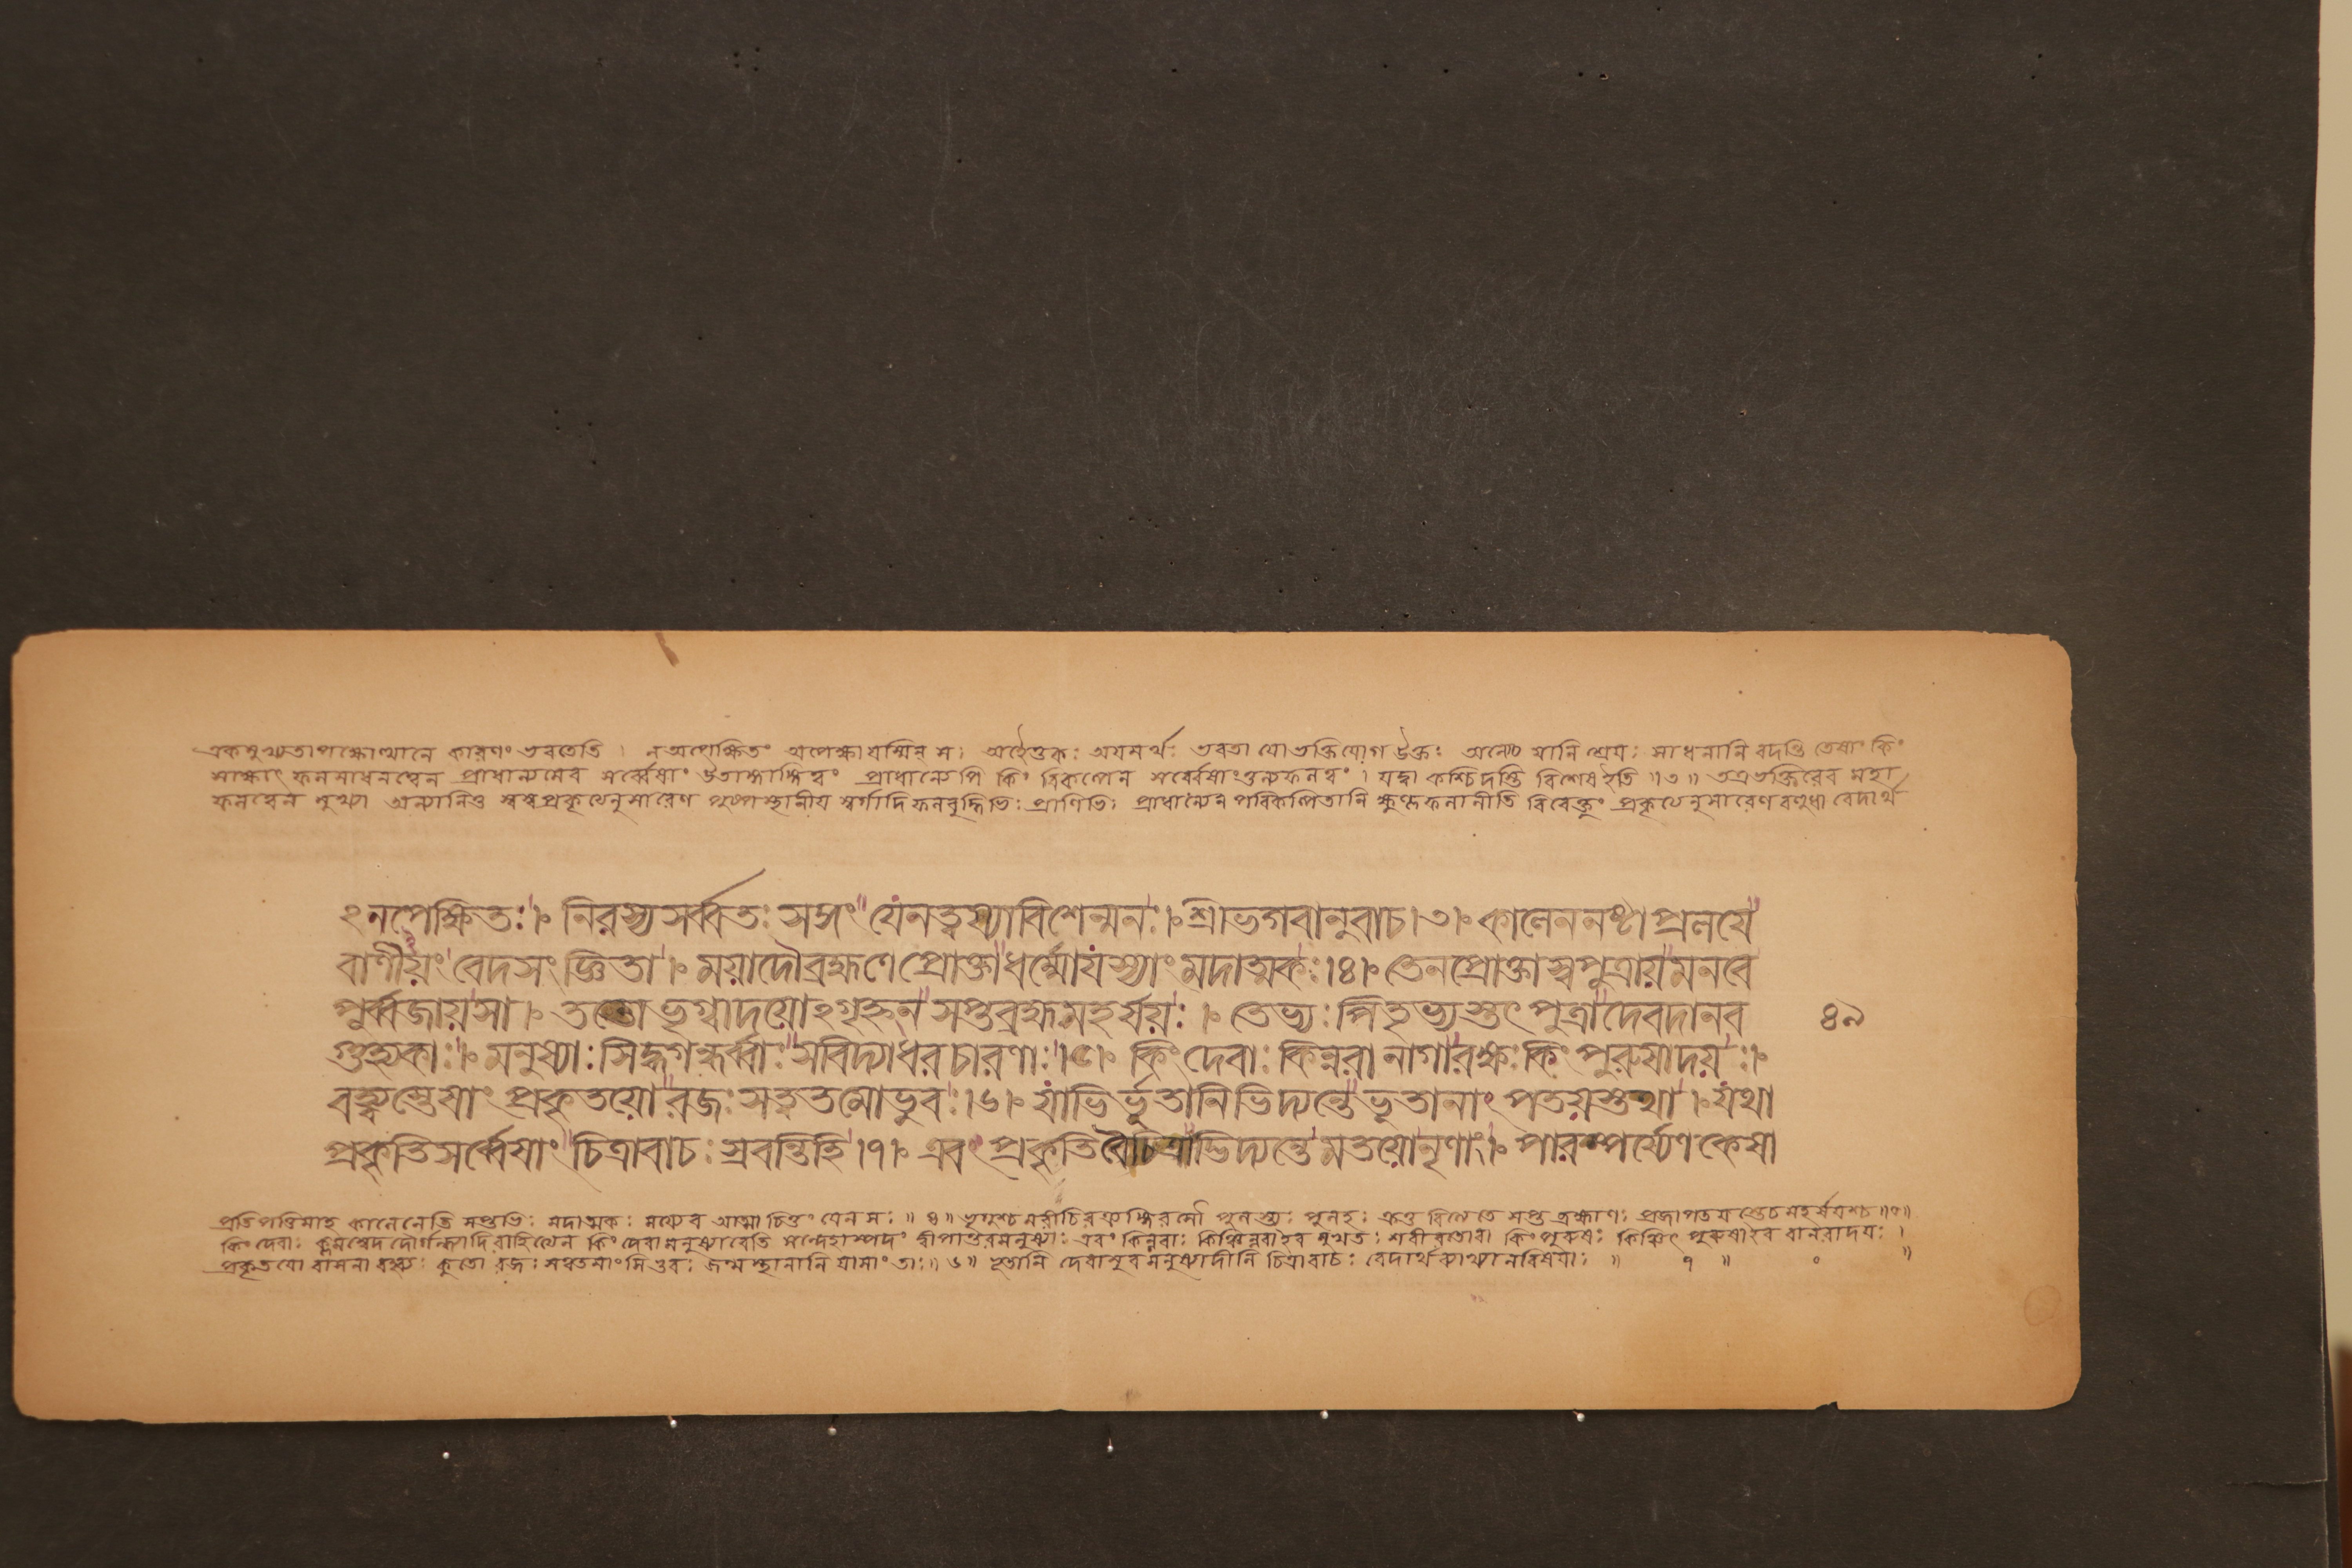 একমুখ্যতাপক্ষোত্থানে কারণং ভবতেতি । ন অপেক্ষিতং অপেক্ষা যস্মিন্ স। অহৈতুকঃ অযমর্থঃ ভবতা যো ভক্তিযোগ উক্তঃ অন্যেচ যানি শ্রেযঃ সাধনানি বদন্তি তেষাং কিং
সাক্ষাৎ ফলসাধনত্বেন প্রাধান্যমেব সর্ব্বেষাং উতাঙ্গাঙ্গিত্বং প্রাধান্যেপি কিং বিকল্পেন সর্ব্বেষাং তুল্যফলত্বং । যদ্বা কশ্চিদস্তি বিশেষ ইতি ॥৩॥ তত্রভক্তিরেব মহা
ফলত্বেন মুখ্যা অন্যানিতু স্বস্বপ্রকৃত্যনুসারেণ পুষ্পস্থানীয স্বর্গাদি ফলবুদ্ধিভিঃ প্রাণিভিঃ প্রাধান্যেন পরিকল্পিতানি ক্ষুল্লফলানীতি বিবেক্তুং প্রকৃত্যনুসারেণ বহুধা বেদার্থ
ঽনপেক্ষিতঃ। নিরস্য সর্ব্বতঃ সঙ্গং যেনত্বয্যাবিশেন্মনঃ। শ্রীভগবানুবাচ।৩। কালেননষ্টা প্রলযে
বাণীয়ং বেদসংজ্ঞিতা। ময়াদৌব্রহ্মণে প্রোক্তা ধর্ম্মোযস্যাং মদাত্মকঃ।৪। তেনপ্রোক্তা স্বপুত্রায় মনবে
পূর্ব্বজায়সা। ততো ভৃগ্বাদয়োঽগৃহ্ণন্ সপ্তব্রহ্মমহর্ষয়ঃ। তেভ্যঃ পিতৃভ্যস্তৎ পুত্রা দেবদানব
গুহ্যকাঃ। মনুষ্যাঃ সিদ্ধগন্ধর্ব্বাঃ সবিদ্যাধরচারণাঃ।৫। কিং দেবাঃ কিন্নরা নাগা রক্ষঃ কিং পুরুষাদয়ঃ।
বহ্ব্যস্তেষাং প্রকৃতয়ো রজঃ সত্ত্বতমোভুবঃ।৬। যাভির্ভূতানিভিদ্যন্তে ভূতানাং পতয়স্তথা। যথা
প্রকৃতি সর্ব্বেষাং চিত্রাবাচঃ স্রবন্তিহি।৭। এবং প্রকৃতিবৈচিত্র্যাদ্ভিদ্যন্তে মতয়োনৃণাং। পারম্পর্য্যেণ কেষা
৪৯
প্রতিপত্তিমাহ কালেনেতি সপ্তভিঃ মদাত্মকঃ ময্যেব আত্মা চিত্তং যেন সঃ ॥ ৪॥ ভৃগুশ্চ মরীচিরত্র্যঙ্গিরসৌ পুলস্ত্যঃ পুলহঃ ক্রতুরিত্যেতে সপ্ত ব্রহ্মাণঃ প্রজাপতযস্তেচমহর্ষযশ্চ ॥৫॥
কিং দেবাঃ ক্লমস্বেদ দৌর্গন্ধ্যাদি রাহিত্যেন কিং দেবা মনুষ্যাবেতি সন্দেহাস্পদং দ্বীপান্তরমনুষ্যাঃ এবং কিন্নরাঃ কিঞ্চিন্নরাইব মুখতঃ শরীরতোবা কিংপুরুষাঃ কিঞ্চিৎ পুরুষাইব বানরাদযঃ ।
প্রকৃতযো বাসনা বহ্ব্যঃ কুতো রজঃ সত্বতমাংসি ভুবঃ জন্মস্থানানি যাসাং তাঃ॥ ৬॥ ভূতানি দেবাসুর মনুষ্যাদীনি চিত্রাবাচঃ বেদার্থ ব্যাখ্যানবিষযাঃ ॥ ৭ ॥ ০ ॥